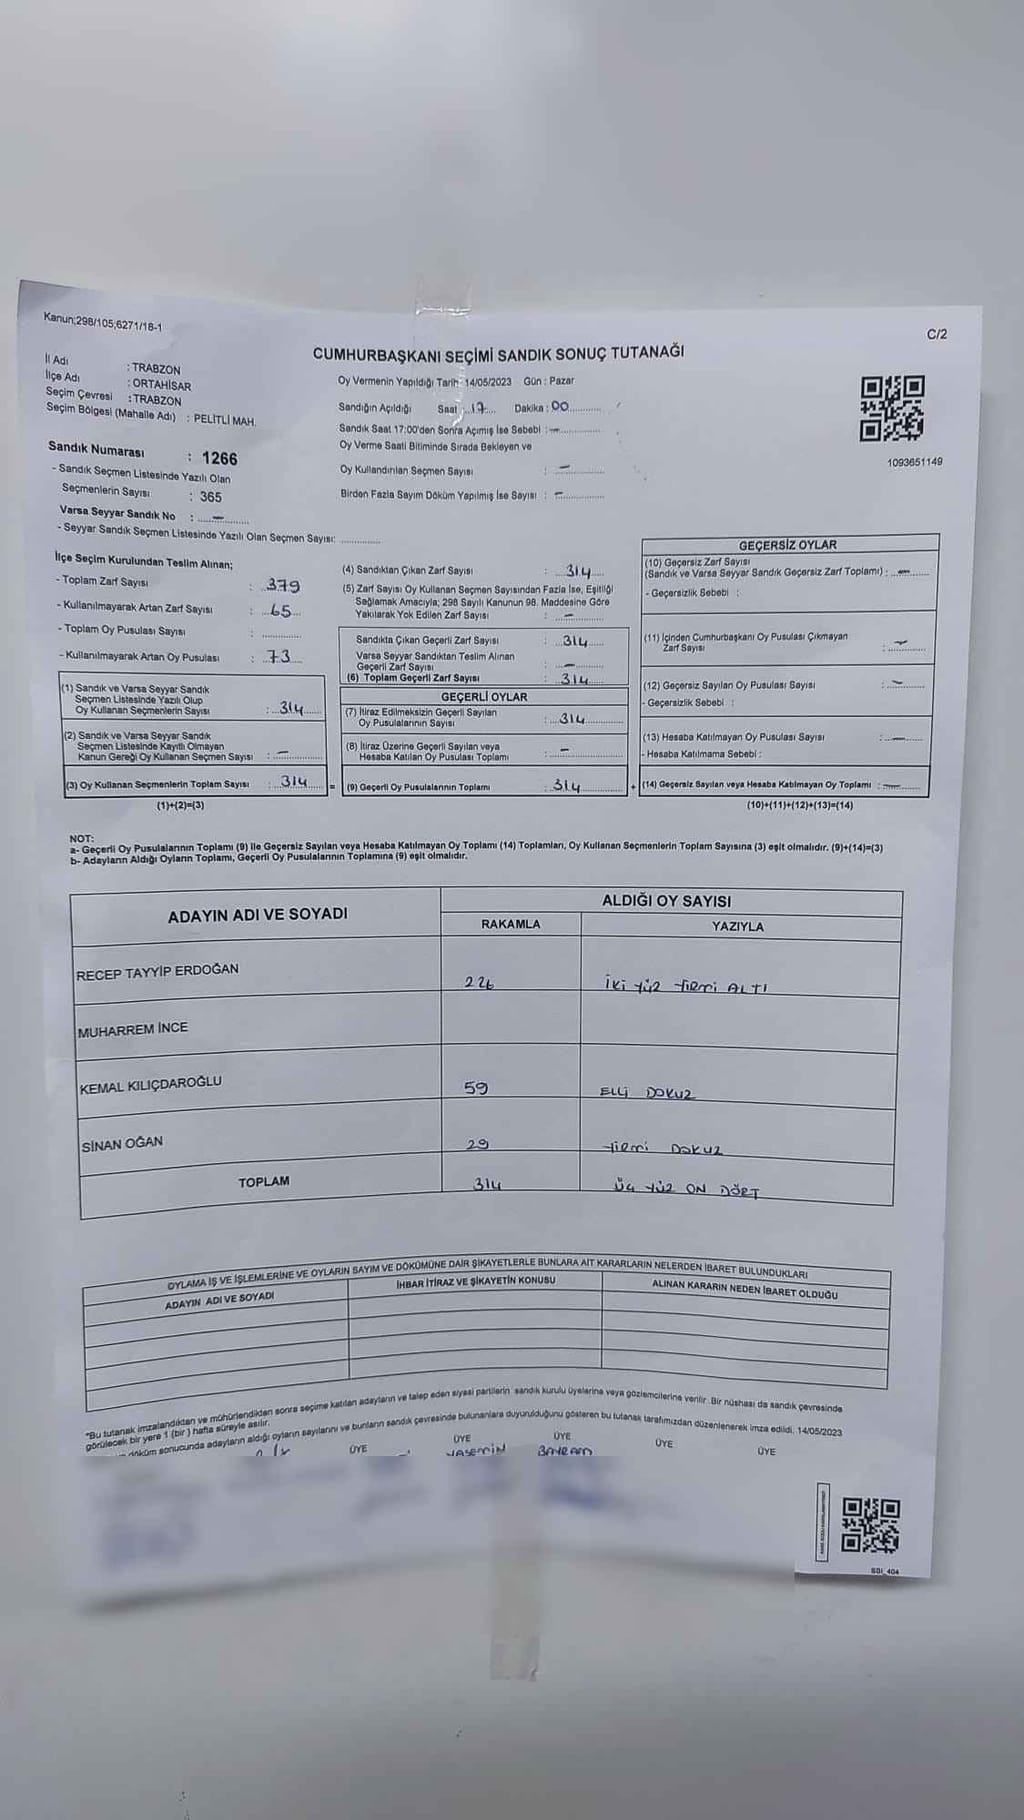 Kanun;298/105;6271/18-1
C/2
CUMHURBAŞKANI SEÇİMİ SANDIK SONUÇ TUTANAĞI
İl Adı : TRABZON
İlçe Adı : ORTAHİSAR
Seçim Çevresi : TRABZON
Seçim Bölgesi (Mahalle Adı) : PELİTLİ MAH.
Sandık Numarası : 1266
- Sandık Seçmen Listesinde Yazılı Olan
Seçmenlerin Sayısı : 365
Varsa Seyyar Sandık No : –
- Seyyar Sandık Seçmen Listesinde Yazılı Olan Seçmen Sayısı: ............
Oy Vermenin Yapıldığı Tarih 14/05/2023 Gün : Pazar
Sandığın Açıldığı Saat : 17 Dakika : 00
Sandık Saat 17:00'den Sonra Açımış İse Sebebi : –
Oy Verme Saati Bitiminde Sırada Bekleyen ve
Oy Kullandırılan Seçmen Sayısı : –
Birden Fazla Sayım Döküm Yapılmış İse Sayısı : –
1093651149
İlçe Seçim Kurulundan Teslim Alınan;
- Toplam Zarf Sayısı : 379
- Kullanılmayarak Artan Zarf Sayısı : 65
- Toplam Oy Pusulası Sayısı : ............
- Kullanılmayarak Artan Oy Pusulası : 73
(1) Sandık ve Varsa Seyyar Sandık
Seçmen Listesinde Yazılı Olup
Oy Kullanan Seçmenlerin Sayısı : 314
(2) Sandık ve Varsa Seyyar Sandık
Seçmen Listesinde Kayıtlı Olmayan
Kanun Gereği Oy Kullanan Seçmen Sayısı : –
(3) Oy Kullanan Seçmenlerin Toplam Sayısı : 314 =
(1)+(2)=(3)
(4) Sandıktan Çıkan Zarf Sayısı : 314
(5) Zarf Sayısı Oy Kullanan Seçmen Sayısından Fazla İse, Eşitliği
Sağlamak Amacıyla; 298 Sayılı Kanunun 98. Maddesine Göre
Yakılarak Yok Edilen Zarf Sayısı : –
Sandıkta Çıkan Geçerli Zarf Sayısı : 314
Varsa Seyyar Sandıktan Teslim Alınan
Geçerli Zarf Sayısı : –
(6) Toplam Geçerli Zarf Sayısı : 314
GEÇERLİ OYLAR
(7) İtiraz Edilmeksizin Geçerli Sayılan
Oy Pusulalarının Sayısı : 314
(8) İtiraz Üzerine Geçerli Sayılan veya
Hesaba Katılan Oy Pusulası Toplamı : –
(9) Geçerli Oy Pusulalarının Toplamı : 314 +
GEÇERSİZ OYLAR
(10) Geçersiz Zarf Sayısı
(Sandık ve Varsa Seyyar Sandık Geçersiz Zarf Toplamı) : –
- Geçersizlik Sebebi :
(11) İçinden Cumhurbaşkanı Oy Pusulası Çıkmayan
Zarf Sayısı : –
(12) Geçersiz Sayılan Oy Pusulası Sayısı : –
- Geçersizlik Sebebi :
(13) Hesaba Katılmayan Oy Pusulası Sayısı : –
- Hesaba Katılmama Sebebi :
(14) Geçersiz Sayılan veya Hesaba Katılmayan Oy Toplamı : –
(10)+(11)+(12)+(13)=(14)
NOT:
a- Geçerli Oy Pusulalarının Toplamı (9) ile Geçersiz Sayılan veya Hesaba Katılmayan Oy Toplamı (14) Toplamları, Oy Kullanan Seçmenlerin Toplam Sayısına (3) eşit olmalıdır. (9)+(14)=(3)
b- Adayların Aldığı Oyların Toplamı, Geçerli Oy Pusulalarının Toplamına (9) eşit olmalıdır.
ADAYIN ADI VE SOYADI
ALDIĞI OY SAYISI
RAKAMLA YAZIYLA
RECEP TAYYİP ERDOĞAN 226 İKİ YÜZ YİRMİ ALTI
MUHARREM İNCE
KEMAL KILIÇDAROĞLU 59 ELLİ DOKUZ
SİNAN OĞAN 29 YİRMİ DOKUZ
TOPLAM 314 ÜÇ YÜZ ON DÖRT
OYLAMA İŞ VE İŞLEMLERİNE VE OYLARIN SAYIM VE DÖKÜMÜNE DAİR ŞİKAYETLERLE BUNLARA AİT KARARLARIN NELERDEN İBARET BULUNDUKLARI
ADAYIN ADI VE SOYADI İHBAR İTİRAZ VE ŞİKAYETİN KONUSU ALINAN KARARIN NEDEN İBARET OLDUĞU
"Bu tutanak imzalandıktan ve mühürlendikten sonra seçime katılan adayların ve talep eden siyasi partilerin sandık kurulu üyelerine veya gözlemcilerine verilir. Bir nüshası da sandık çevresinde
görülecek bir yere 1 (bir) hafta süreyle asılır.
döküm sonucunda adayların aldığı oyların sayılarını ve bunların sandık çevresinde bulunanlara duyurulduğunu gösteren bu tutanak tarafımızdan düzenlenerek imza edildi. 14/05/2023
ÜYE ÜYE ÜYE ÜYE ÜYE
YASEMİN BAYRAM